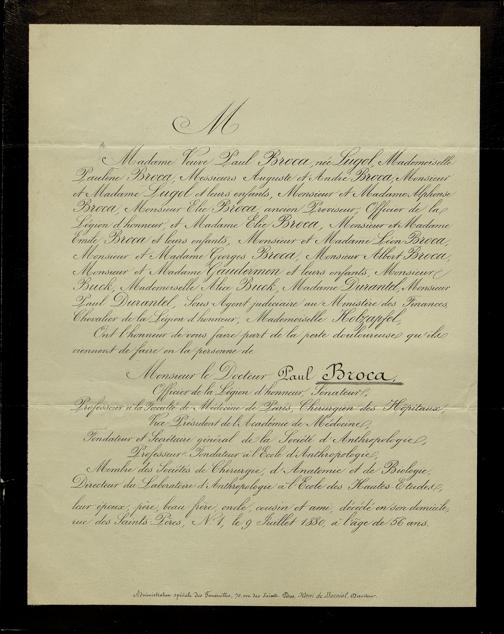 M
Madame Veuve Paul Broca, née Lugol, Mademoiselle
Pauline Broca, Messieurs Auguste et André Broca, Monsieur
et Madame Lugol et leurs enfants, Monsieur et Madame Alphonse
Broca, Monsieur Elie Broca, ancien Proviseur, Officier de la
Légion d'honneur, et Madame Elie Broca, Monsieur et Madame
Emile Broca et leurs enfants, Monsieur et Madame Léon Broca,
Monsieur et Madame Georges Broca, Monsieur Albert Broca,
Monsieur et Madame Gaudermen et leurs enfants, Monsieur
Buck, Mademoiselle Alice Buck, Madame Durantel, Monsieur
Paul Durantel, Sous Agent judiciaire au Ministère des Finances,
Chevalier de la Légion d'honneur, Mademoiselle Holzapfel,
Ont l'honneur de vous faire part de la perte douloureuse qu'ils
viennent de faire en la personne de
Monsieur le Docteur Paul Broca,
Officier de la Légion d'honneur, Sénateur,
Professeur à la Faculté de Médecine de Paris, Chirurgien des Hôpitaux,
Vice Président de l'Académie de Médecine,
Fondateur et Secrétaire général de la Société d'Anthropologie,
Professeur-Fondateur à l'Ecole d'Anthropologie,
Membre des Sociétés de Chirurgie, d'Anatomie et de Biologie,
Directeur du Laboratoire d'Anthropologie à l'Ecole des Hautes Etudes,
leur époux, père, beau frère, oncle, cousin et ami, décédé en son domicile,
rue des Saints Pères, N° 1, le 9 Juillet 1880, à l'âge de 56 ans.
Administration spéciale des Funérailles, 70, rue des Saints Pères, Henri de Borniol, Directeur.